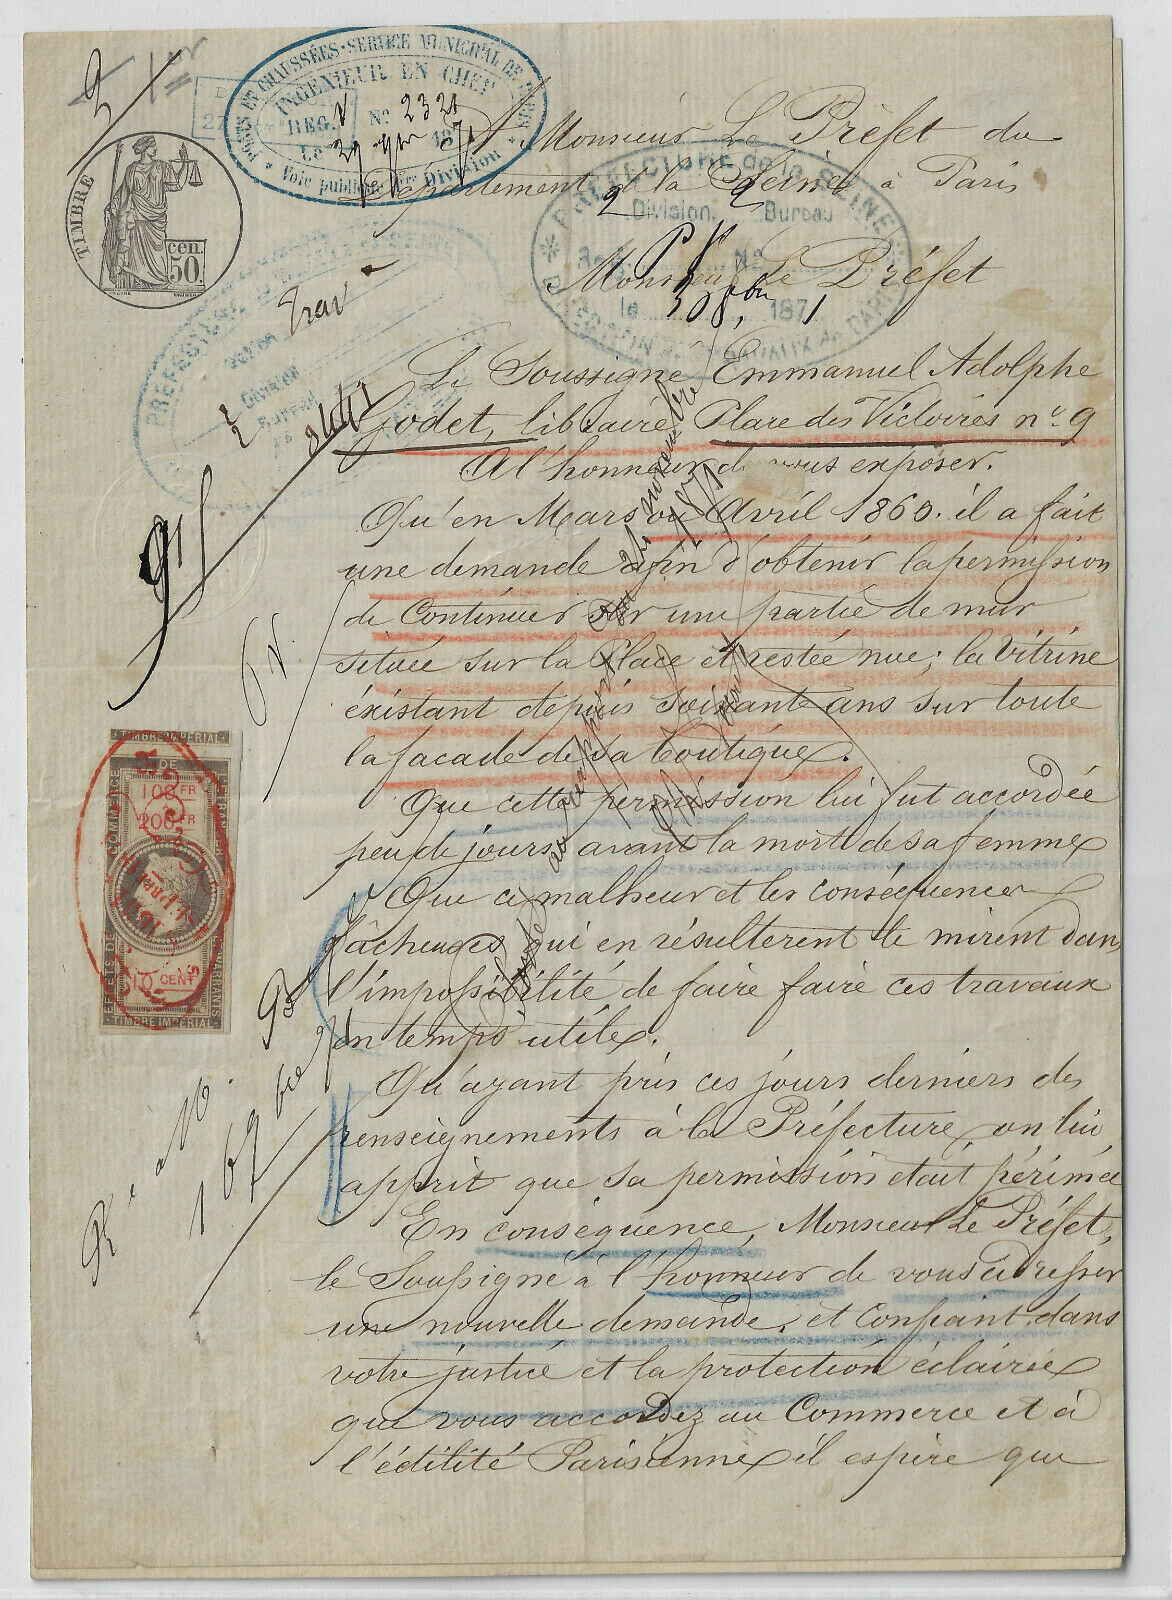 PONTS ET CHAUSSÉES - SERVICE MUNICIPAL DE PARIS
INGÉNIEUR EN CHEF
REG. V No 2321
Le 29 9bre 1871
Voie publique 1ère Division
TIMBRE
50 cen.
PRÉFECTURE de la SEINE
2 Division 2 Bureau
No
le 30 8bre 1871
PRÉFECTURE
Division
Bureau
Monsieur Le Préfet du
Département de la Seine à Paris
Monsieur Le Préfet
Le Soussigné Emmanuel Adolphe
Godet, libraire Place des Victoires n° 9
A l'honneur de vous exposer.
Qu'en Mars ou Avril 1860. il a fait
une demande afin d'obtenir la permission
de Continuer sur une partie de mur
située sur la Place et restée nue; la Vitrine
éxistant depuis soixante ans sur toute
la façade de sa boutique.
Que cette permission lui fut accordée
peu de jours avant la mort de sa femme
Que ce malheur et les conséquences
fâcheuses qui en résultèrent le mirent dans
l'impossibilité de faire faire ces travaux
en temps utile.
Qu'ayant pris ces jours derniers des
renseignements à la Préfecture, on lui
apprit que sa permission était périmée
En conséquence, Monsieur Le Préfet,
le Soussigné à l'honneur de vous adresser
une nouvelle demande, et Confiant dans
votre justice et la protection éclairée
que vous accordez au Commerce et à
l'édilité Parisienne il espère que
TIMBRE IMPÉRIAL
EFFETS DE COMMERCE
100 FR
200 FR
10 CENT
WARRANTS
TIMBRE IMPÉRIAL
Trav
novembre
1871